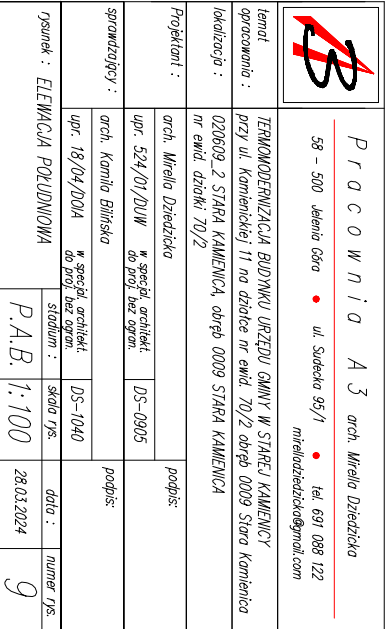 Pracownia A3 arch. Mirella Dziedzicka
58 - 500 Jelenia Góra • ul. Sudecka 95/1 • tel. 691 088 122
mirelladziedzicka@gmail.com
temat opracowania : TERMOMODERNIZACJA BUDYNKU URZĘDU GMINY W STAREJ KAMIENICY
przy ul. Kamienickiej 11 na działce nr ewid. 70/2 obręb 0009 Stara Kamienica
lokalizacja : 020609_2 STARA KAMIENICA, obręb 0009 STARA KAMIENICA
nr ewid. działki 70/2
Projektant : arch. Mirella Dziedzicka podpis:
upr. 524/01/DUW w specjal. architekt. do proj. bez ogran. DS-0905
sprawdzający : arch. Kamila Bilińska podpis:
upr. 18/04/DOIA w specjal. architekt. do proj. bez ogran. DS-1040
rysunek : ELEWACJA POŁUDNIOWA
stadium : skala rys. data : numer rys.
P.A.B. 1:100 28.03.2024 9